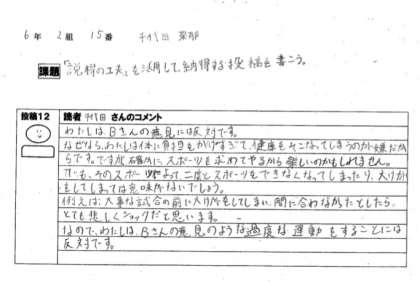 6年 2組 15番 千代田 菜那
課題 「説得の工夫」を活用して納得する投稿を書こう。
投稿12 読者 千代田 さんのコメント
わたしは、Bさんの意見には反対です。
なぜなら、わたしは体に負担をかけすぎて、健康をそこなってしまうのが嫌だか
らです。ですが、限界に、スポーツを求めてやるから楽しいのかもしれません。
でも、そのスポーツによって二度とスポーツをできなくなってしまったり、大けが
をしてしまっては意味がないでしょう。
例えば、大事な試合の前に大けがをしてしまい、間に合わなかったとしたら、
とても悲しくショックだと思います。
なので、わたしは、Bさんの意見のような過度な運動をすることには
反対です。